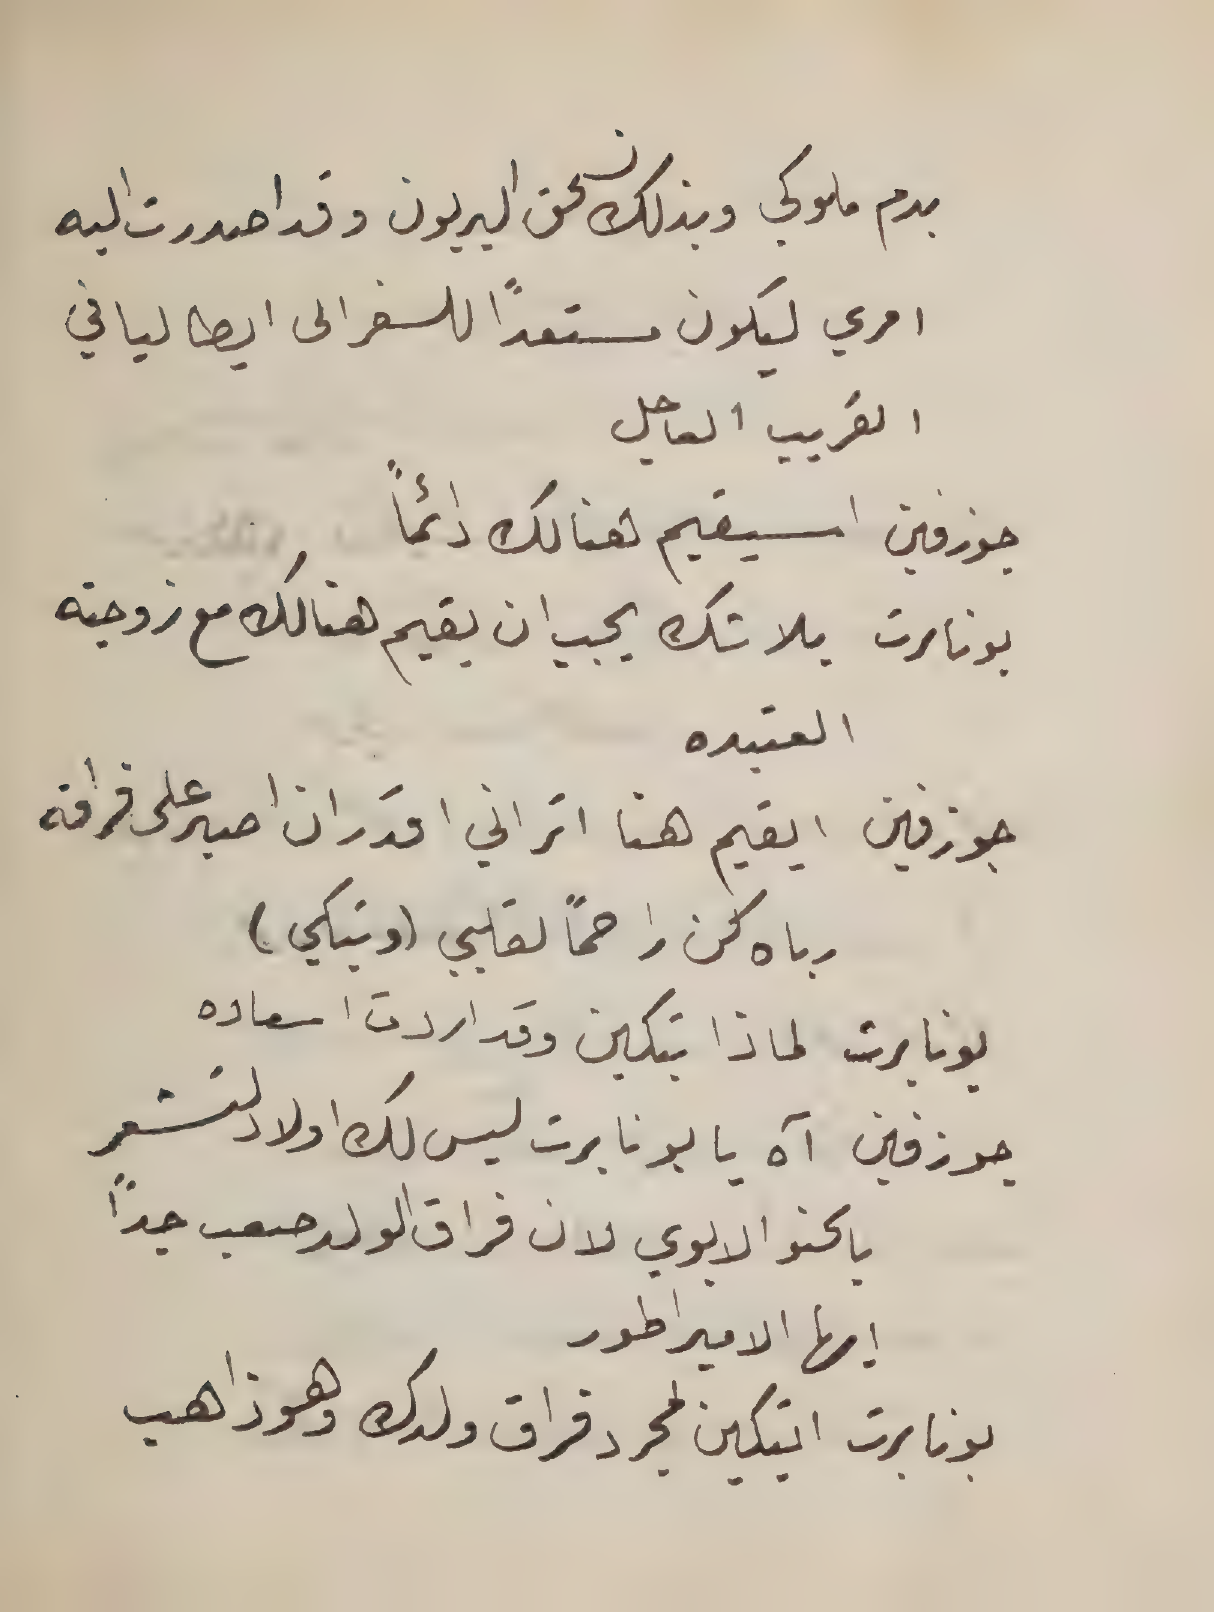 بدم ملوكي وبذلك نسحق البربون وقد اصدرت اليه
امري ليكون مستعدًا للسفر الى ايطاليا في
القريب العاجل
جوزفين اسيقيم هنالك دائمًا
بونابرت بلا شك يجب ان يقيم هنالك مع زوجته
العتيده
جوزفين ايقيم هنا اتراني اقدر ان اصبر على فراقه
رباه كن راحمًا لقلبي (وتبكي)
بونابرت لماذا تبكين وقد اردت اسعاده
جوزفين آه يا بونابرت ليس لك اولاد لتشعر
بالحنو الابوي لان فراق الولد صعب جدًا
ايها الامبراطور
بونابرت اتبكين لمجرد فراق ولدك وهو ذاهب